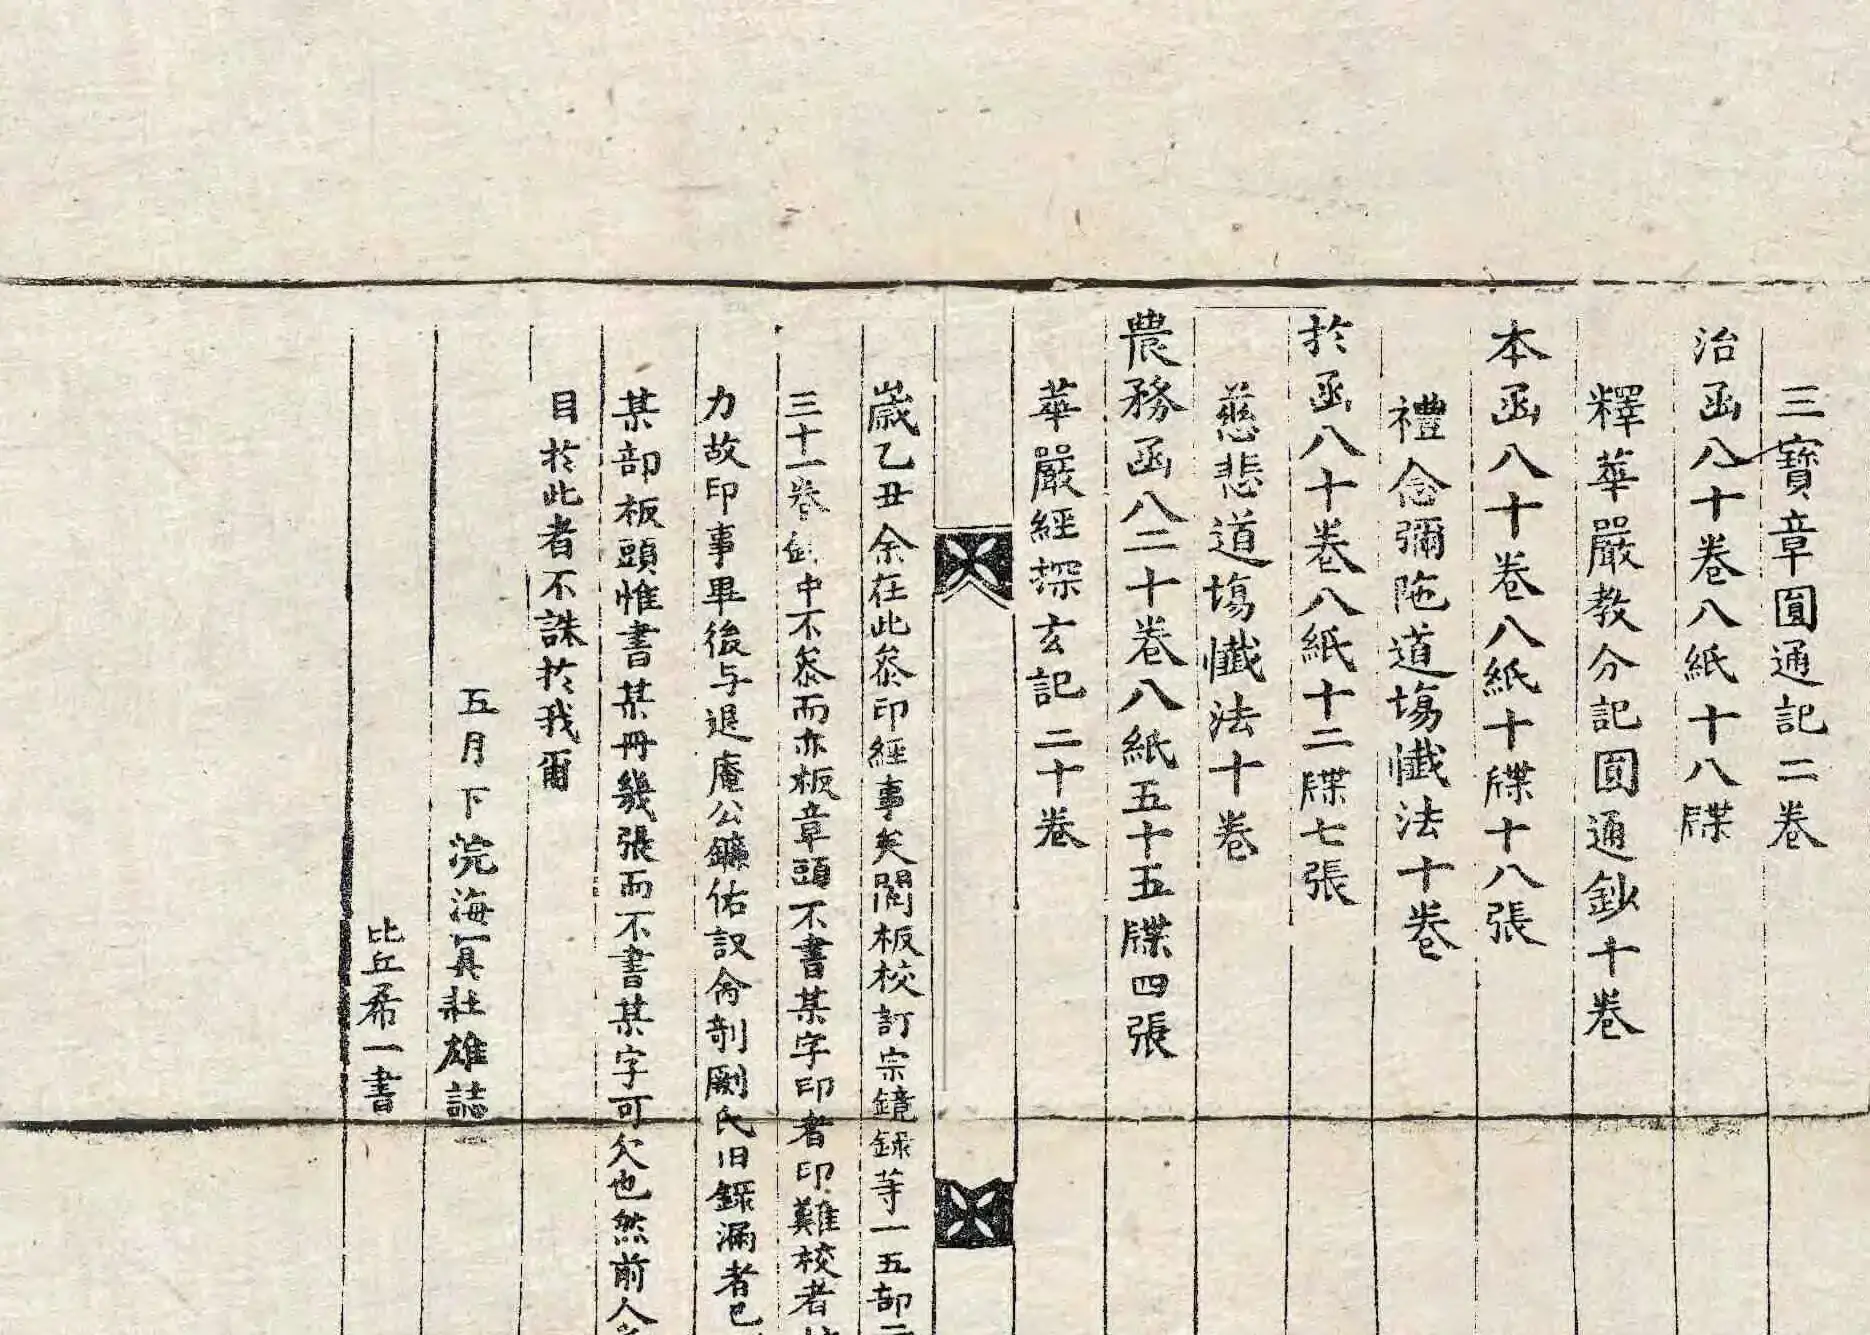 三寶章圓通記二卷
治函八十卷八紙十八牒
釋華嚴教分記圓通鈔十卷
本函八十卷八紙十牒十八張
禮念彌陁道塲懺法十卷
於函八十卷八紙十二牒七張
慈悲道塲懺法十卷
農務函八二十卷八紙五十五牒四張
華嚴經探玄記二十卷
歲乙丑余在此叅印經事矣閱板校訂宗鏡錄等一五部二
三十一卷錄中不叅而亦板章頭不書某字印者印難校者
力故印事畢後与退庵公鐮佑訍侖剞劂氏旧錄漏者已
某部板頭惟書某冊幾張而不書某字可欠也然前人
目於此者不誅於我爾
五月下浣海冥壯雄誌
比丘希一書